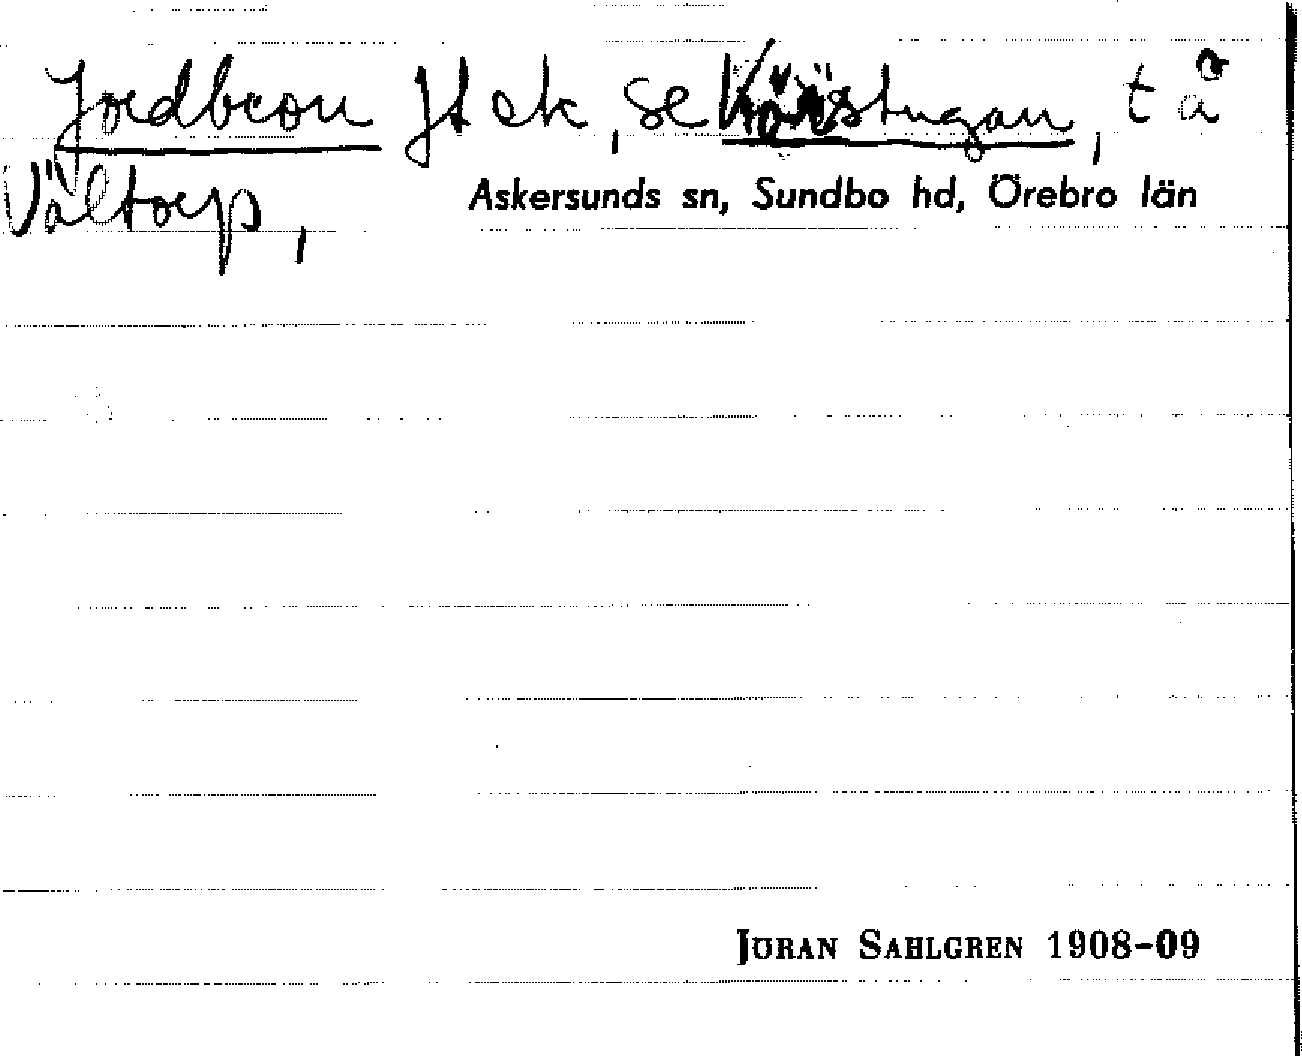 Jordbron Jt ek, se stugan, t å
Vältorp,
Askersunds sn, Sundbo hd, Örebro län
JÖRAN SAHLGREN 1908-09